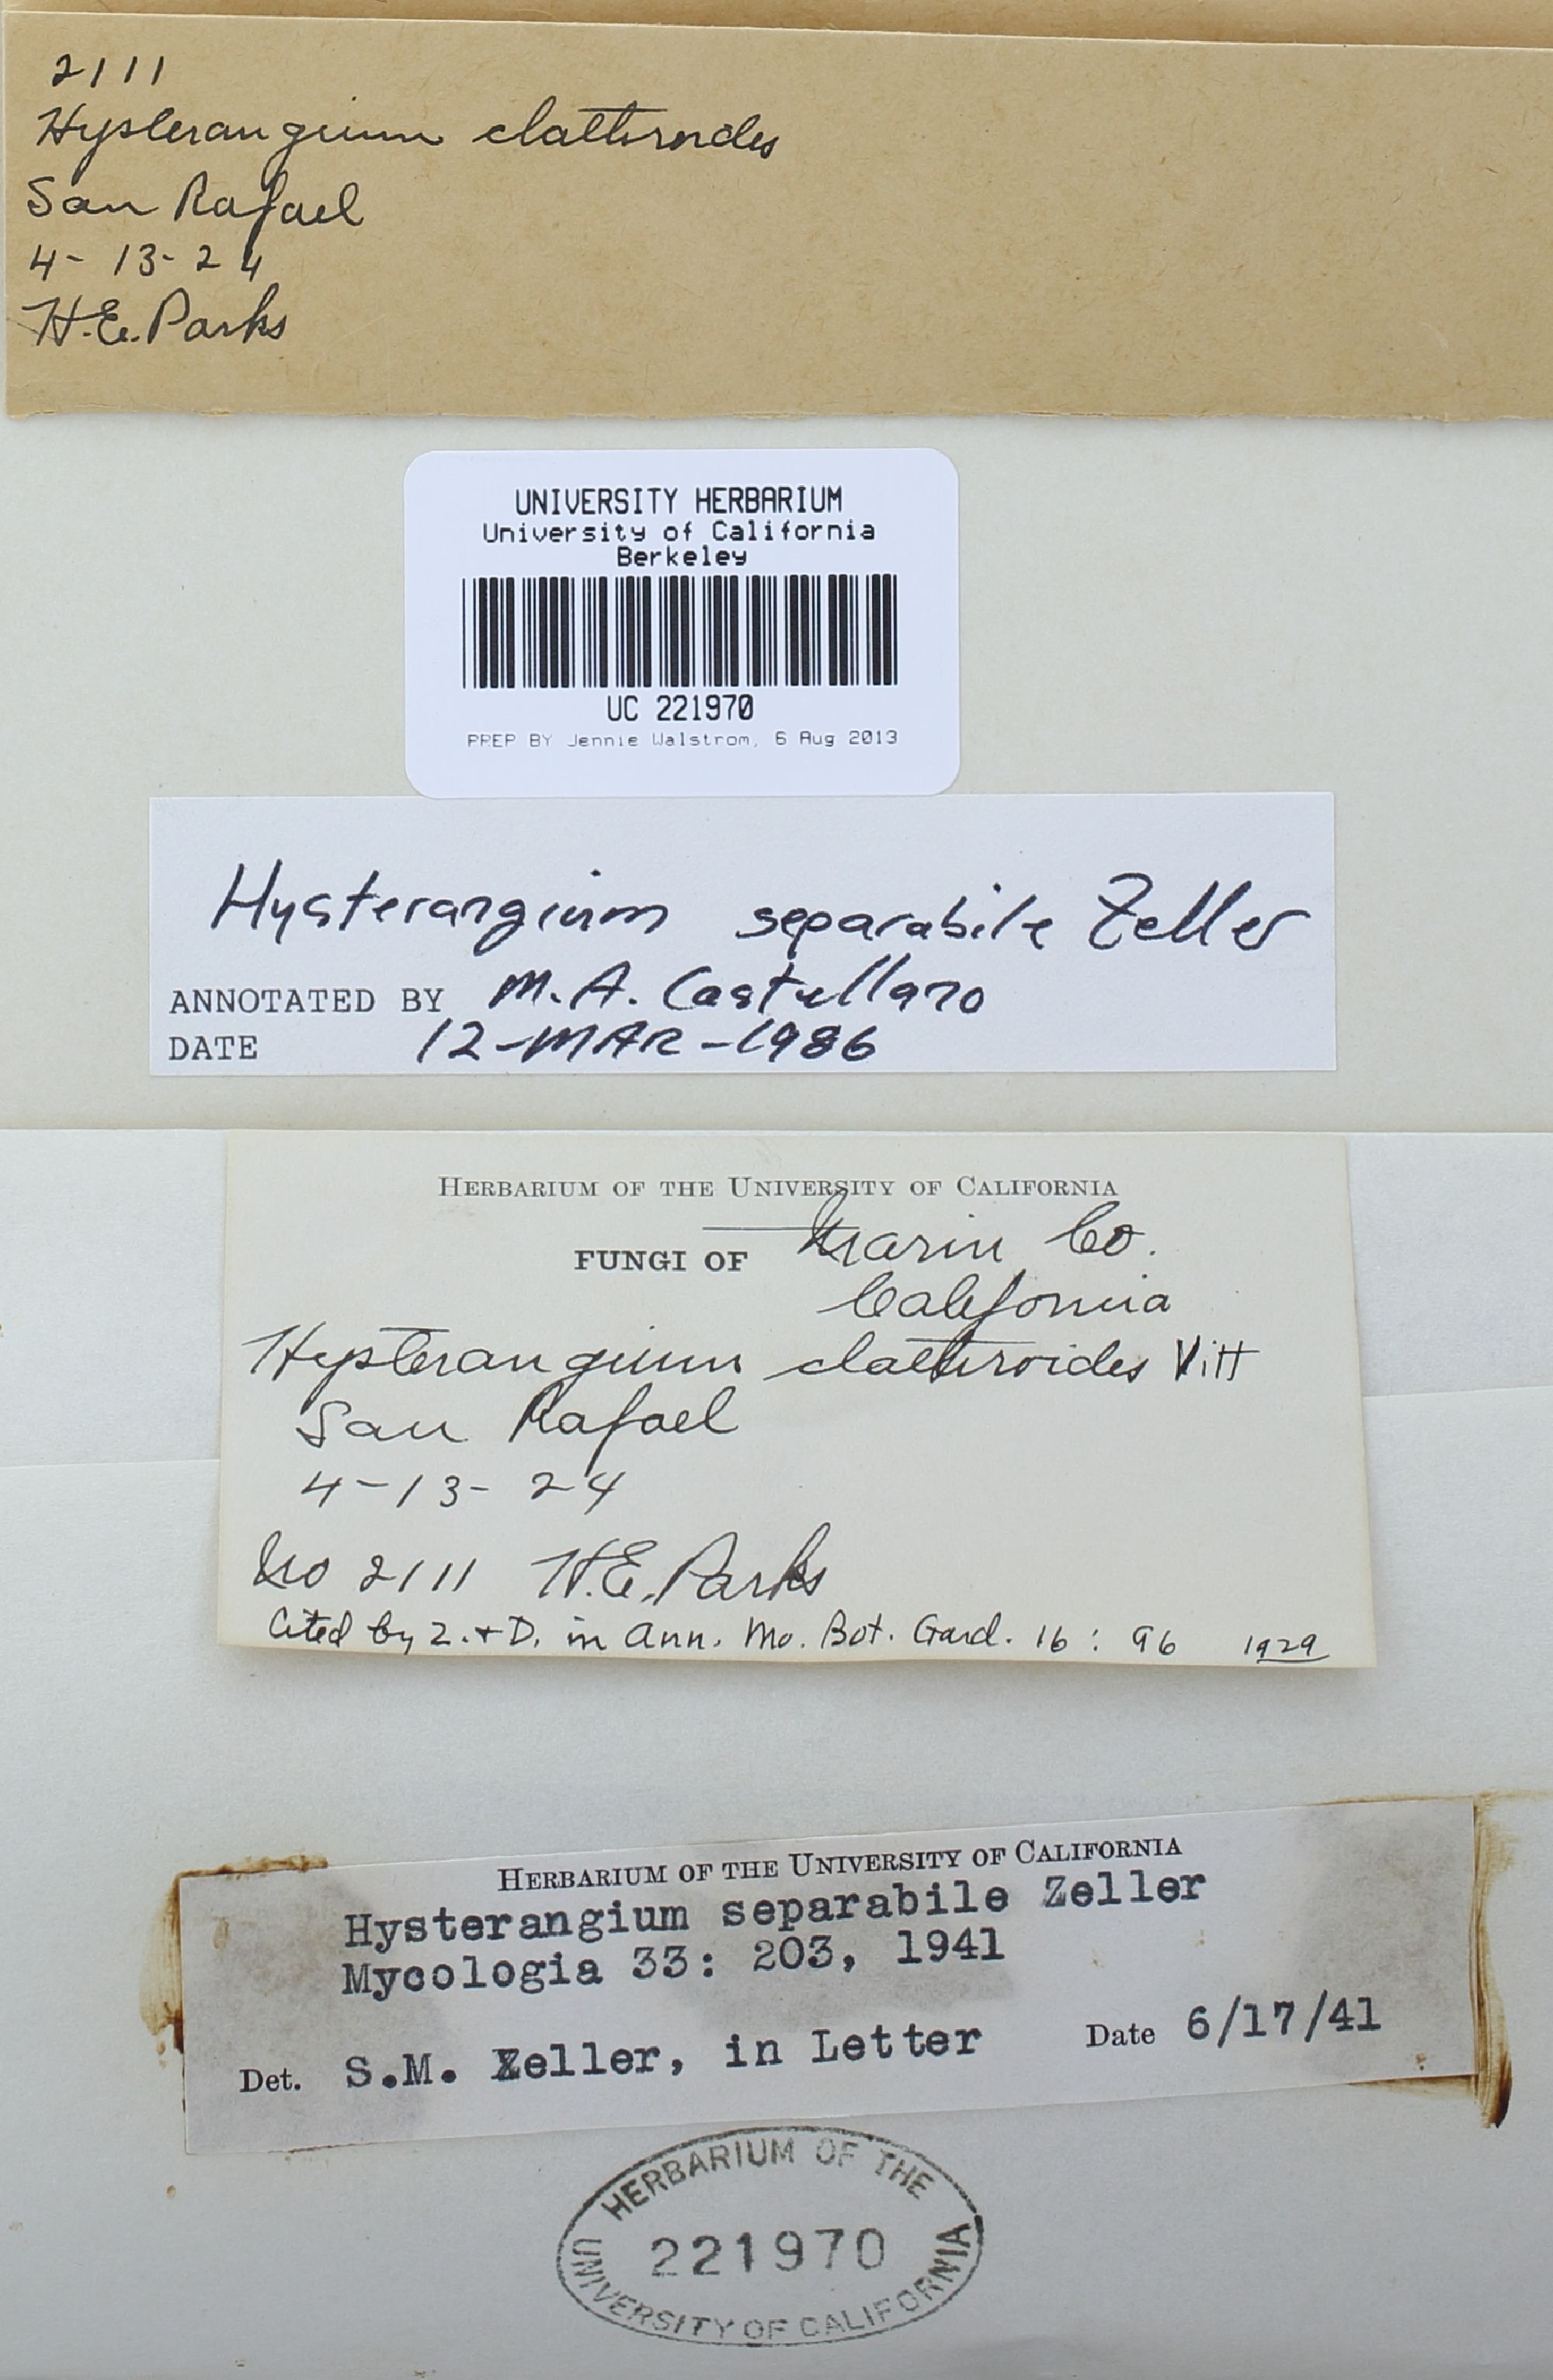 2111
Hysterangium clathroides
San Rafael
4-13-24
H.E. Parks
UNIVERSITY HERBARIUM
University of California
Berkeley
UC 221970
PREP BY Jennie Walstrom, 6 Aug 2013
Hysterangium separabile Zeller
ANNOTATED BY M.A. Castellano
DATE 12-MAR-1986
HERBARIUM OF THE UNIVERSITY OF CALIFORNIA
FUNGI OF Marin Co.
California
Hysterangium clathroides Vitt
San Rafael
4-13-24
No 2111 H.E. Parks
Cited by Z. + D. in Ann. Mo. Bot. Gard. 16: 96 1929
HERBARIUM OF THE UNIVERSITY OF CALIFORNIA
Hysterangium separabile Zeller
Mycologia 33: 203, 1941
Det. S.M. Zeller, in Letter Date 6/17/41
HERBARIUM OF THE
221970
UNIVERSITY OF CALIFORNIA